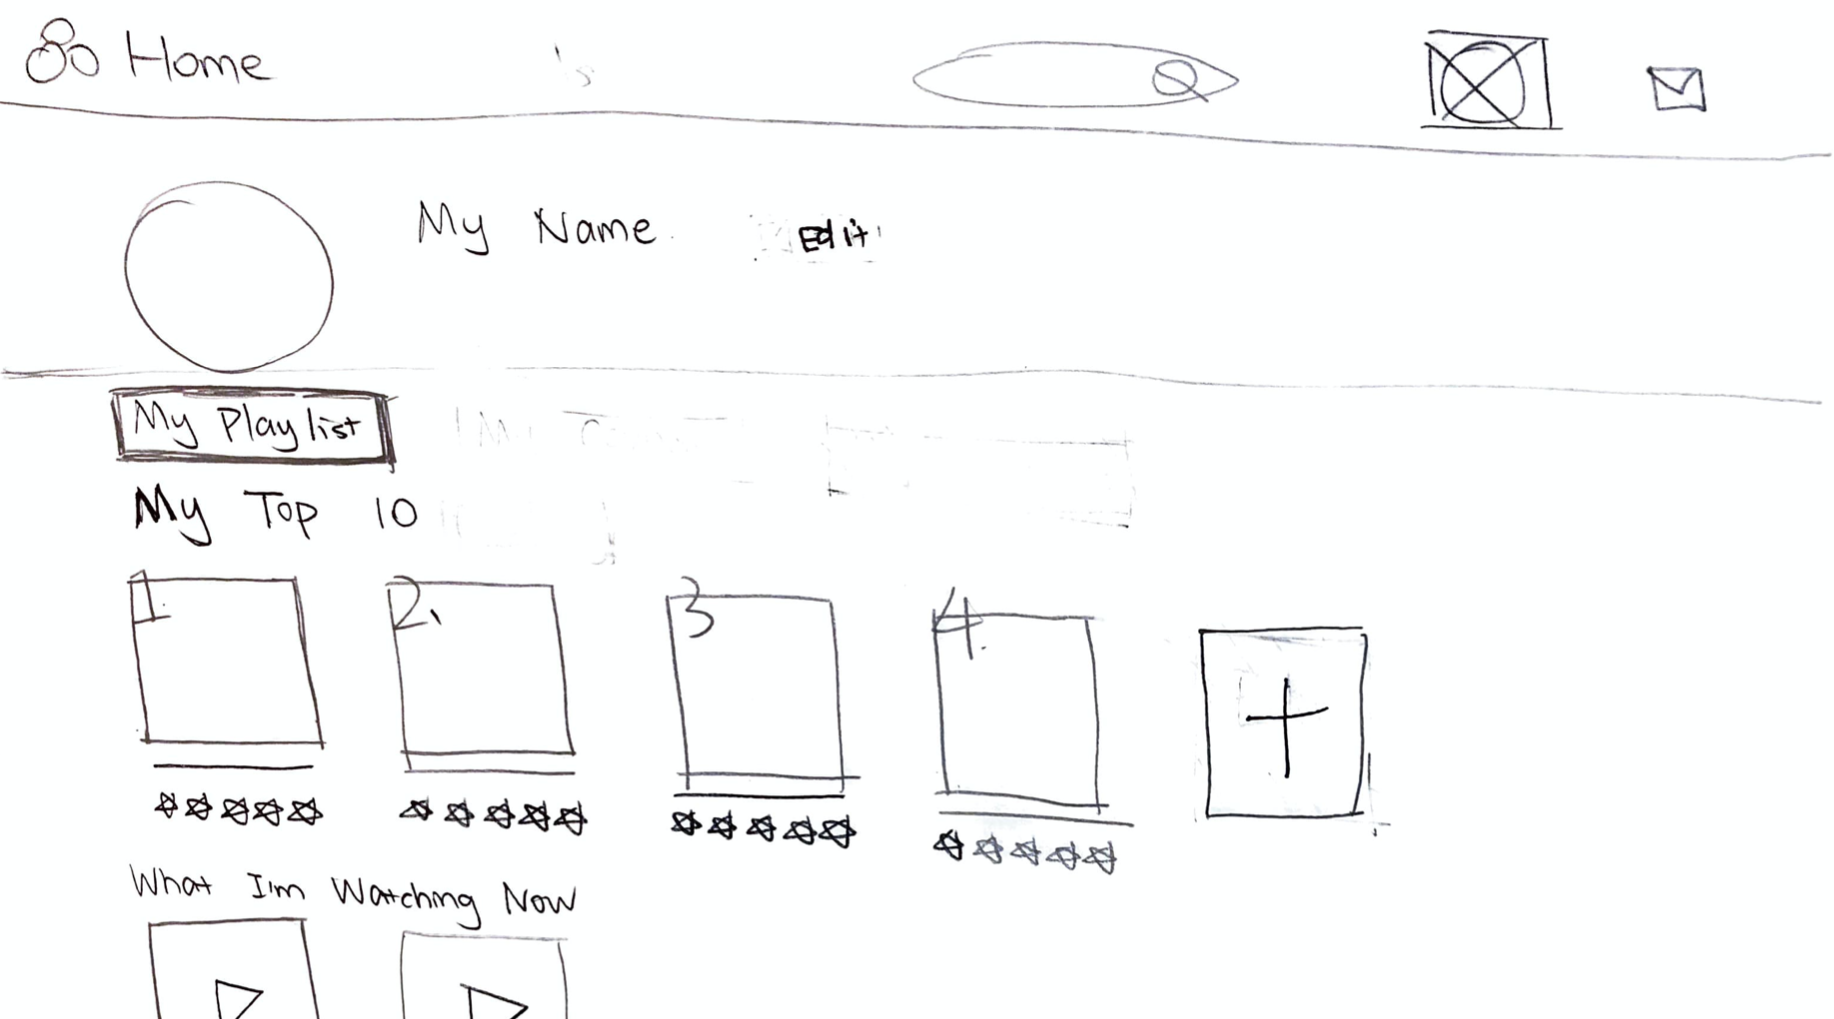 Home
My Name Edit
My Playlist
My Top 10
1. 2. 3 4.
What I'm Watching Now